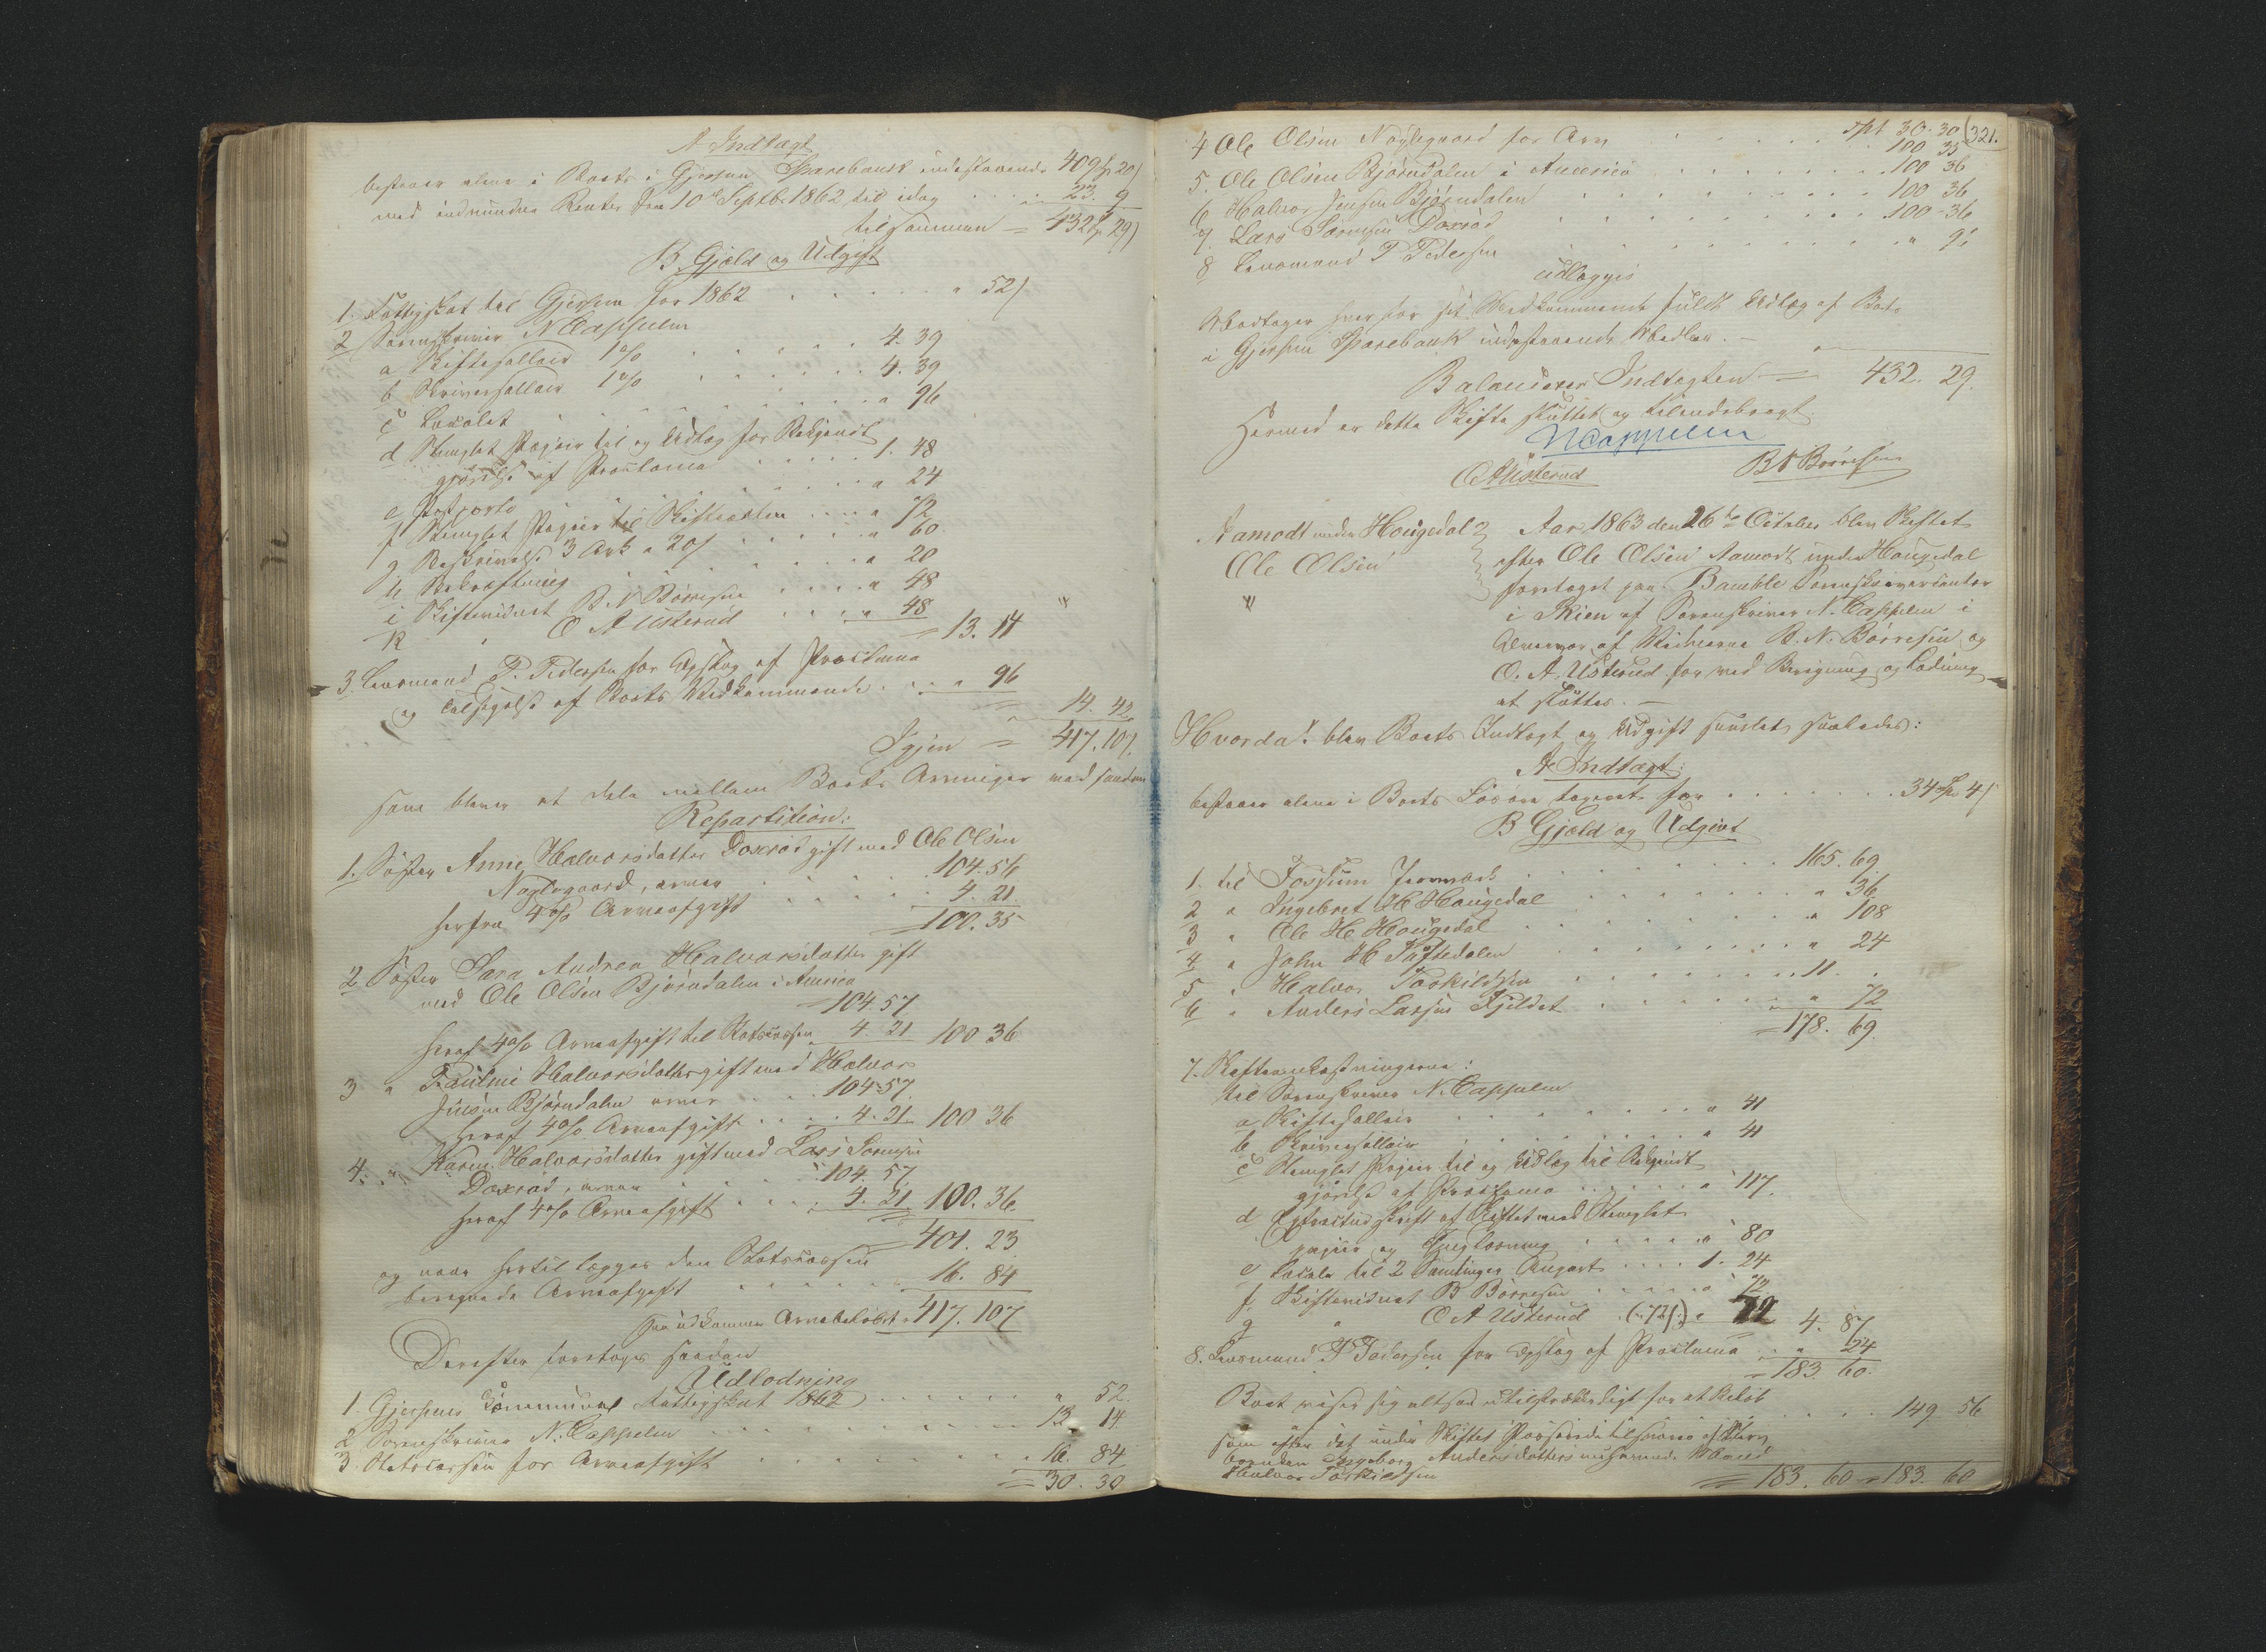 A Indtægt
bestaaer alene i Boets i Gjerpens Sparebank indestaaende 409 20
med indvundne Renter fra 10de Septbr. 1862 til idag 23. 9
tilsammen = 432 29
B. Gjæld og Udgift
1. Fattigskat til Gjerpen for 1862 " 52
2 Sorenskriver N Cappelen
a Skiftesallair 1% 4. 39
b Skriversallair 1% 4. 39
c Localet " 96
d Stemplet Papiir til og Udlæg for Bekjendt
gjørelse af Proclama 1. 48
e Postporto " 24
f Stemplet Papiir til Skifteakten " 72
g Beskrivelse 3 Ark a 20 " 60
h Bekræftning " 20
i Skiftevidnet B N Børresen " 48
k " O A Usterud " 48
= 13. 14
3. Lensmand P. Pedersen for Opslag af Proclama
og Tilsigelse af Boets Vedkommende " 96
14. 42
Igjen = 417. 107
som bliver at dele mellem Boets Arvinger ved saadan
Repartition:
1. Søster Anne Halvorsdatter Doxrød gift med Ole Olsen
Nøglegaard, arver 104. 56
herfra 4% Arveafgift 4. 21
= 100. 35
2 Søster Sara Andrea Halvorsdatter gift
med Ole Olsen Bjørndalen i America
= 104. 57
heraf 4% Arveafgift til Statscassen 4. 21 100 36
3 " Pauline Halvorsdatter gift med Halvor
Jensen Bjørndalen arver 104. 57
heraf 4% Arveafgift 4. 21 100 36
4. " Karen Halvorsdatter gift med Lars Sørensen
Doxrød, arver 104. 57
heraf 4% Arveafgift 4. 21 100. 36
401. 23
og naar hertil lægges den Statscassen
beregnede Arveafgift 16. 84
saa udkommer Arvebeløbet 417. 107
Derefter foretoges saadan
Udlodning
1. Gjerpens Commune Fattigskat 1862 " 52.
2 Sorenskriver N. Cappelen 13 14
3. Statscassen for Arveafgift 16. 84
= 30. 30
321.
4 Ole Olsen Nøglegaard for Arv Spd 30. 30
100 35
5. Ole Olsen Bjørndalen i America 100 36
6 Halvor Jensen Bjørndalen 100 36
7. Lars Sørensen Doxrød 100 - 36
8 Lensmand P Pedersen " 96
udlægges
Modtager hver for sit Vedkommende fuldt Udlæg af Boets
i Gjerpens Sparebank indestaaende Midler. -
Balancerer Indtægten = 432. 29.
Hermed er dette Skifte sluttet og tilendebragt.
N Cappelen
O A Usterud B N Børresen
Aamodt under Hougedal
Ole Olsen
"
Aar 1863 den 26de October blev Skiftet
efter Ole Olsen Aamodt under Hougedal
foretaget paa Bamble Sorenskrivercontor
i Skien af Sorenskriver N. Cappelen i
Overvær af Vidnerne B. N. Børresen og
O. A. Usterud for ved Beregning og Lodning
at sluttes. -
Hvorda: blev Boets Indtægt og Udgift sluttet saaledes:
A Indtægt:
bestaaer alene i Boets Løsøre taxeret for 34 Spd 4
B Gjæld og Udgivt
1. til Fossum Jernværk 165. 69.
2 " Ingebret H Hougedal " 36
3 " Ole H Hougedal " 108
4 " John H Tuftedalen " 24
5 " Halvor Torkildsen 11. .
6 " Anders Larsen Fjeldet " 72
= 178. 69.
7. Skifteomkostningerne:
til Sorenskriver N. Cappelen
a Skiftesallair " 41
b Skriversallair " 41
c Stemplet Papiir til og Udlæg til Bekjendt
gjørelse af Proclama " 117.
d Extractudskrift af Skiftet med Stemplet
papiir og " 80
e Locale til 2 Samlinger 1. 24
f. Skiftevidnet B Børresen " 72
g " O A Usterud (: 72 :) " 72 4. 87
8. Lensmand P Pedersen for Opslag af Proclama " 24
= 183. 60.
Boet viser sig altsaa utilstrækkeligt for et Beløb
149 56
som efter det under Skiftet Passerede tilsvares af
Ingeborg Andersdatters nuværende Mand
Halvor Torkildsen
= 183. 60 = 183. 60